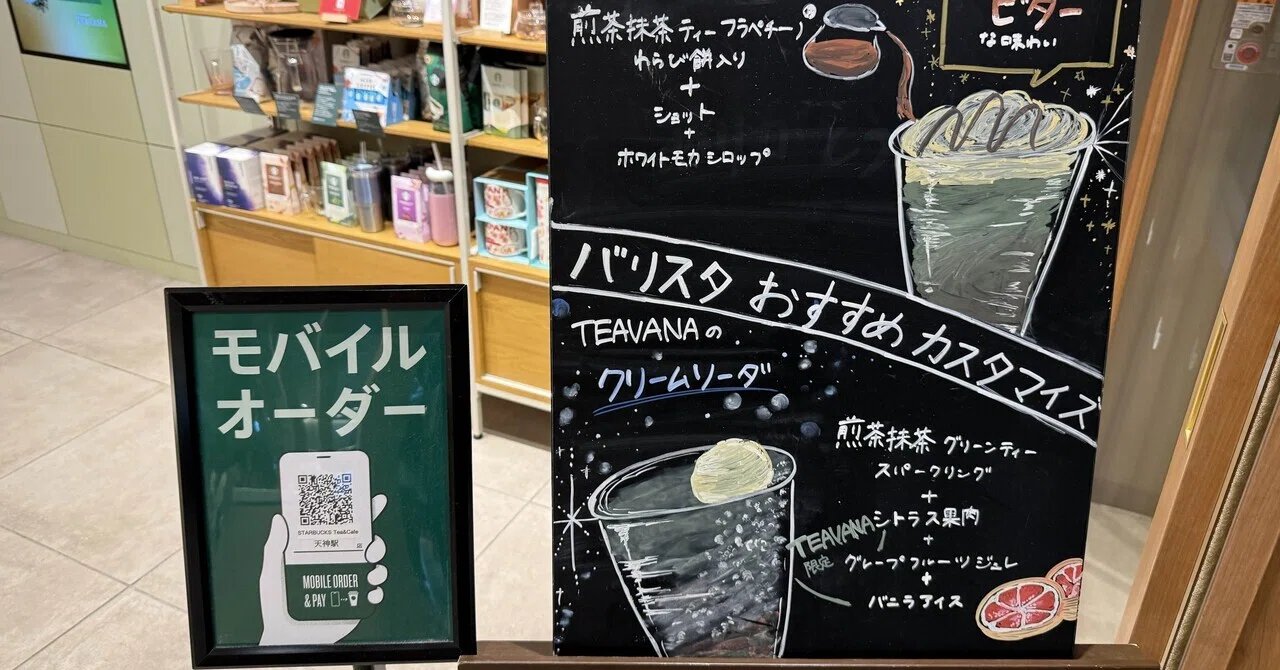 モバイル
オーダー
STARBUCKS Tea&Cafe
天神駅 店
MOBILE ORDER
& PAY
ビター
な味わい
煎茶抹茶 ティー フラペチーノ®
わらび餅入り
+
ショット
+
ホワイトモカ シロップ
バリスタ おすすめ カスタマイズ
TEAVANAの
クリームソーダ
煎茶抹茶 グリーンティー
スパークリング
+
シトラス果肉
+
グレープフルーツ ジュレ
+
バニラアイス
TEAVANA
限定